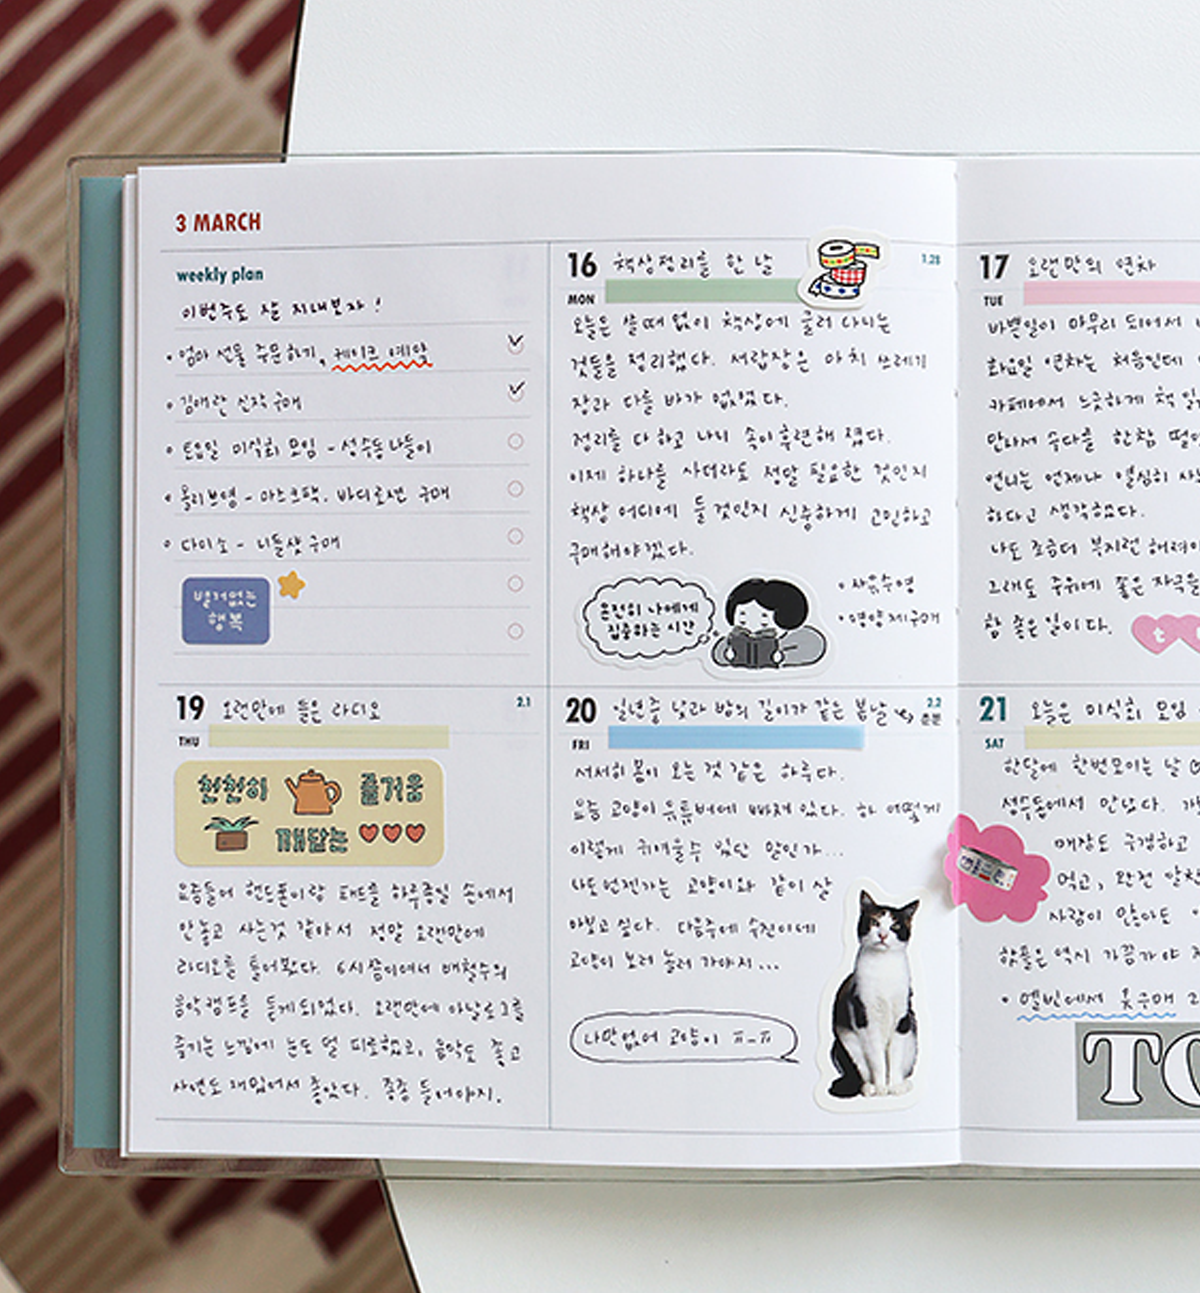 3 MARCH
weekly plan
이번주도 잘 지내보자!
• 엄마 선물 주문하기, 케이크 예약
• 김애란 신작 구매
• 토요일 미식회 모임 - 성수동 나들이
• 올리브영 - 마스크팩, 바디로션 구매
• 다이소 - 니들샷 구매
별거없는
행복
16 책상정리를 한 날
1.28
MON
오늘은 쓸데 없이 책상에 굴러 다니는
것들을 정리했다. 서랍장은 마치 쓰레기
장과 다를 바가 없었다.
정리를 다 하고 나니 속이후련해 졌다.
이제 하나를 사더라도 정말 필요한 것인지
책상 어디에 둘 것인지 신중하게 고민하고
구매해야겠다.
온전히 나에게
집중하는 시간
• 자유수영
• 영양제구매
17 오랜만의 연차
TUE
바쁜일이 마무리 되어서
화요일 연차는 처음인데
카페에서 느긋하게 책
만나서 수다를 한참
언니는 언제나 열심히
하다고 생각했다.
나도 조금더 부지런
그래도 주위에 좋은 자극을
참 좋은일이다.
t
19 오랜만에 들은 라디오
2.1
THU
천천히 즐거움
깨닫는
요즘들어 핸드폰이랑 패드를 하루종일 손에서
안놓고 사는것 같아서 정말 오랜만에
라디오를 틀어봤다. 6시쯤이어서 배철수의
음악캠프를 듣게되었다. 오랜만에 아날로그를
즐기는 느낌에 눈도 덜 피로했고, 음악도 좋고
사연도 재밌어서 좋았다. 종종 들어야지.
20 일년중 낮과 밤의 길이가 같은 봄날
2.2
춘분
FRI
서서히 봄이 오는 것 같은 하루다.
요즘 고양이 유튜버에 빠져 있다. 하 어떻게
이렇게 귀여울수 있단 말인가...
나도언젠가는 고양이와 같이 살
아보고 싶다. 다음주에 수진이네
고양이 보러 놀러 가야지...
나만없어 고양이 ㅠ_ㅠ
21 오늘은 미식회 모임
SAT
한달에 한번모이는 날
성수동에서 만났다.
매장도 구경하고
먹고, 완전 알찬
사람이 많아도
핫플은 역시 가끔가야
• 멜빈에서 옷구매
TO